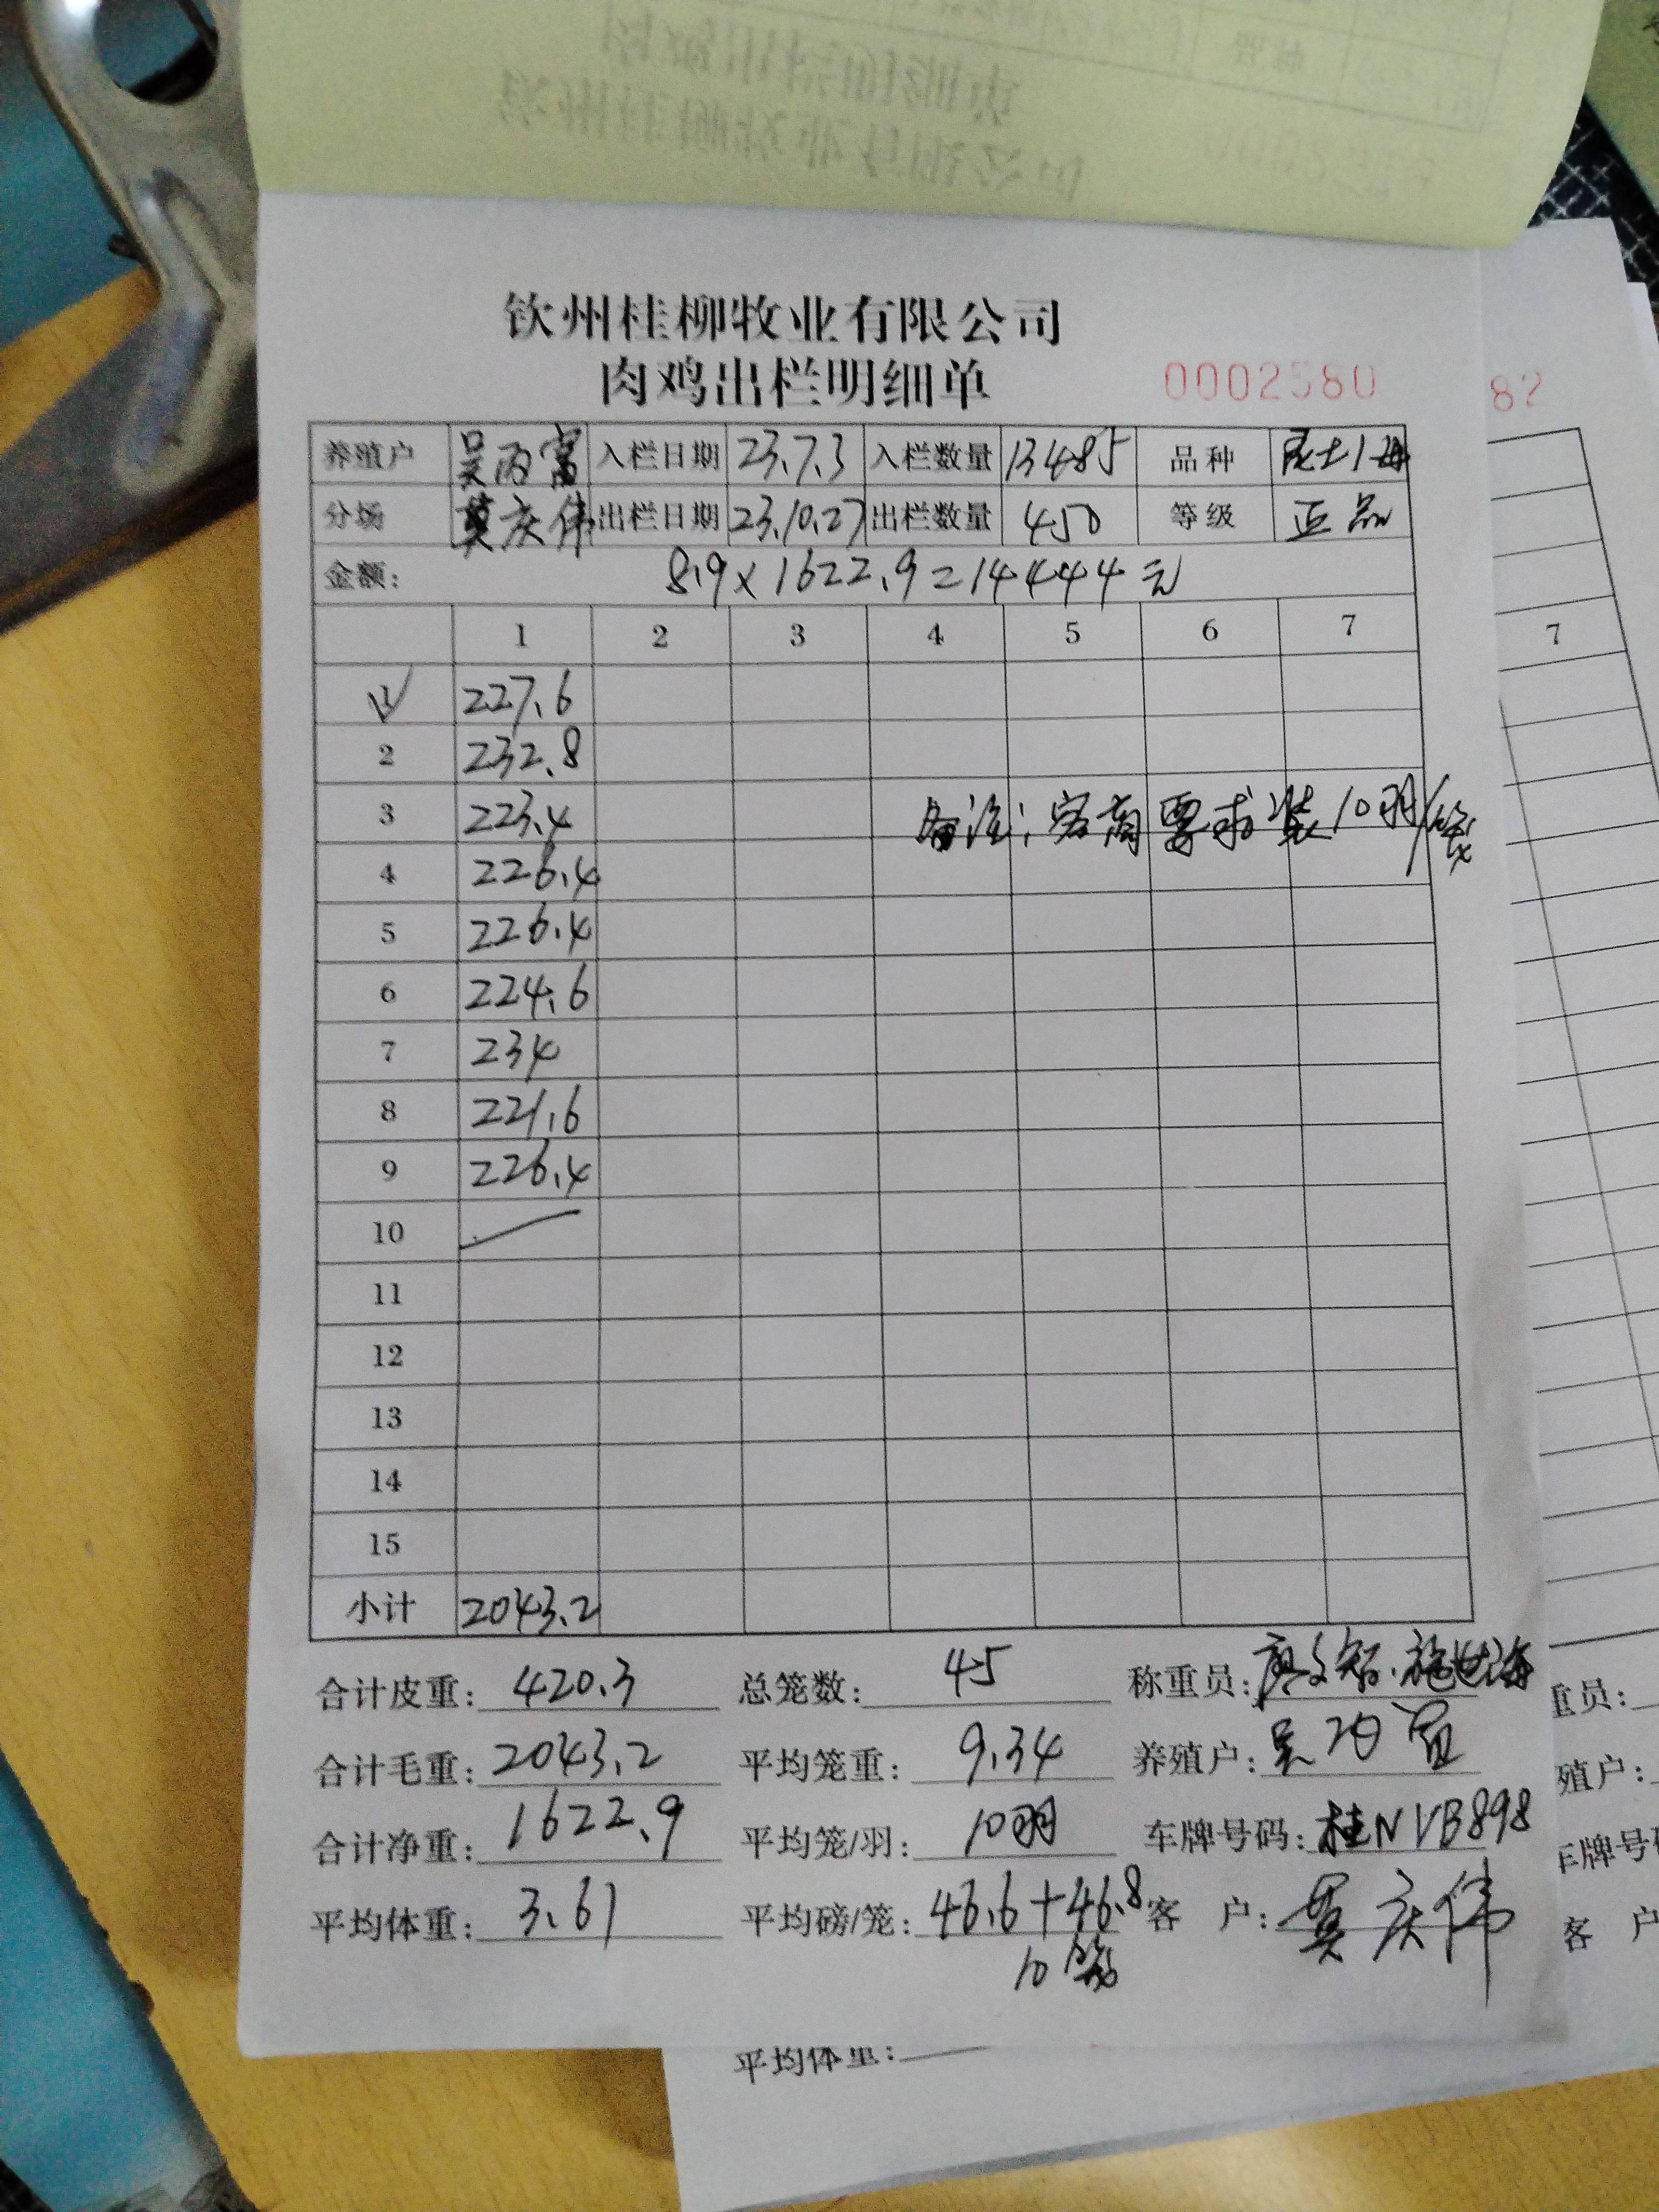 钦州桂柳牧业有限公司
肉鸡出栏明细单 0002580 82
养殖户 吴丙富 入栏日期 23.7.3 入栏数量 13485 品种
分场 莫庆伟 出栏日期 23.10.27 出栏数量 450 等级 正品
金额: 8.9×1622.9=14444元
1 2 3 4 5 6 7 7
1 227.6
2 232.8
3 223.4 备注:客商要求装10羽/笼
4 226.4
5 226.4
6 224.6
7 234
8 221.6
9 226.4
10
11
12
13
14
15
小计 2043.2
合计皮重: 420.3 总笼数: 45 称重员: 重员:
合计毛重: 2043.2 平均笼重: 9.34 养殖户: 殖户:
合计净重: 1622.9 平均笼/羽: 10羽 车牌号码: 桂NVB898 车牌号
平均体重: 3.61 平均磅/笼: 46.6+46.8 客 户: 莫庆伟 客 户
10笼
平均体重: